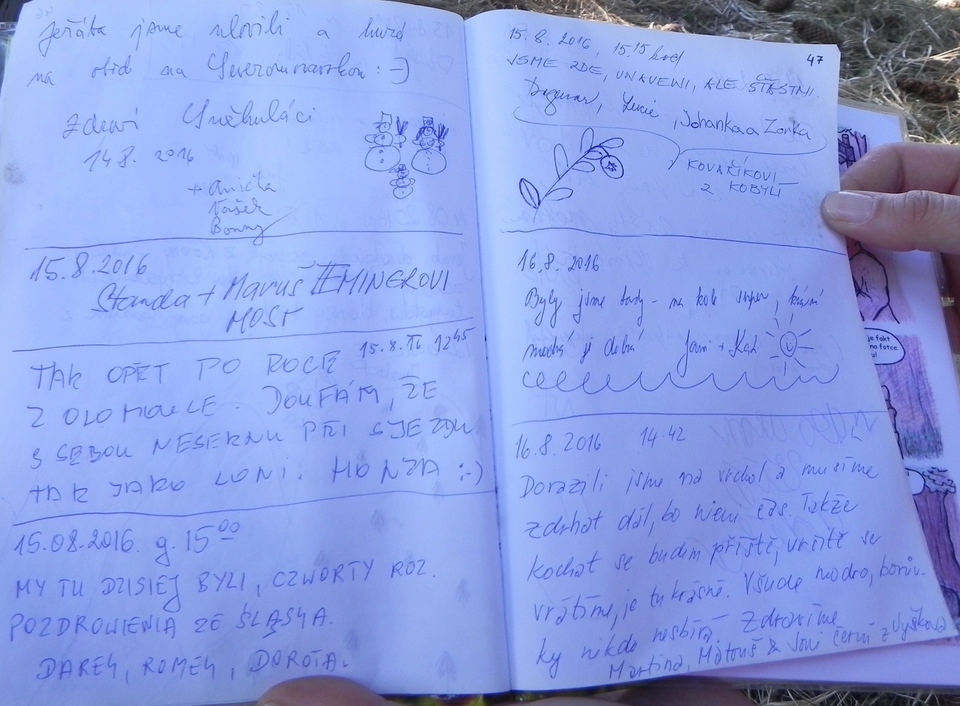 jsme ulovili a hurá
na oběd na Severomoravskou :-)
zdraví Sněhuláci
14.8. 2016
+ Anička
Vašek
Bonny
15.8.2016
Standa + Maruš ZEMINEROVI
MOST
15.8. 12 45
TAK OPĚT PO ROCE
Z OLOMOUCE. DOUFÁM, ŽE
S SEBOU NESEKNU PŘI SJEZDU
TAK JAKO LONI. HONZA :-)
15.08.2016. g. 15 00
MY TU DZISIEJ BYLI, CZWORTY ROZ.
POZDROWIENIA ZE ŚLĄSKA.
DAREK, ROMEK, DOROTA.
47
15.8. 2016, 15.15 hod
JSME ZDE, UNAVENI, ALE ŠTASTNI.
Dagmar, Lucie, Johanka a Zorka
KOVAŘÍKOVI
Z KOBYLÍ
16.8. 2016
Byly jsme tady - na kole super,
modrá je dobrá
16.8. 2016 14.42
Dorazili jsme na vrchol a musíme
zdrhat dál, bo není čas. Takže
kochat se budem příště, určitě se
vrátíme, je tu krásně. Všude modro, borův-
ky nikdo nesbírá. Zdravíme
Martina, Matouš & Joni černí z Vyškova
je fakt
na fotce